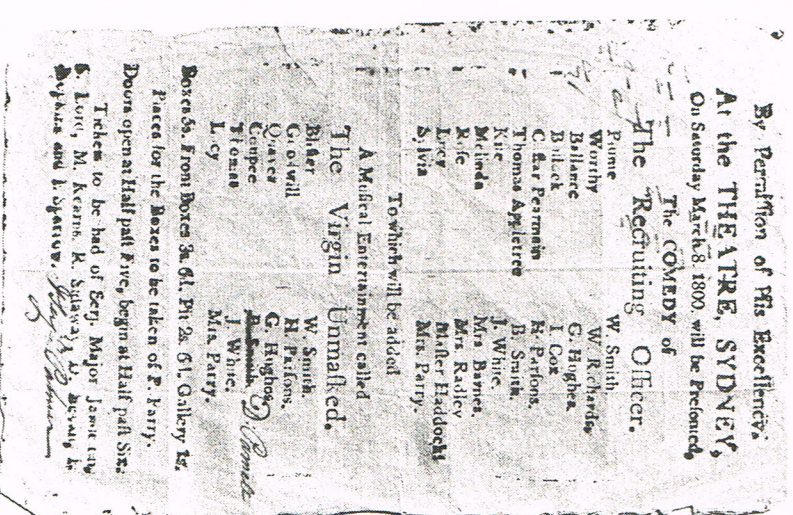 By Permiſſion of His Excellency.
At the THEATRE, SYDNEY,
On Saturday March 8. 1800. will be Preſented,
The COMEDY of
The Recruiting Officer.
Plume W. Smith
Worthy W. Richards,
Ballance G. Hughes,
Bullock I Cox
C. ſtar Pearmain H. Parſons,
Thomas Appletree B. Smith,
Kite J. White,
Melinda Mrs Barnes,
Roſe Mrs Radley
Lucy Maſter Haddocks
Sylvia Mrs. Parry.
To which will be added
A Muſical Entertainment called
The Virgin Unmaſked.
Bliſter W. Smith.
Goodwill H. Parſons,
Quaver G. Hughes,
Coupee B. Smith
Thomas J. White,
Lucy Mrs. Parry.
Boxes 5s. Front Boxes 3s. 6d. Pit 2s. 6d. Gallery 1s.
Places for the Boxes to be taken of P. Parry.
Doors open at Half paſt Five, begin at Half paſt Six.
Tickets to be had of Serj. Major Jamieſon,
S. Lord, M. Kearns, R. Sidaway,
Hopkins and D. Sparrow.